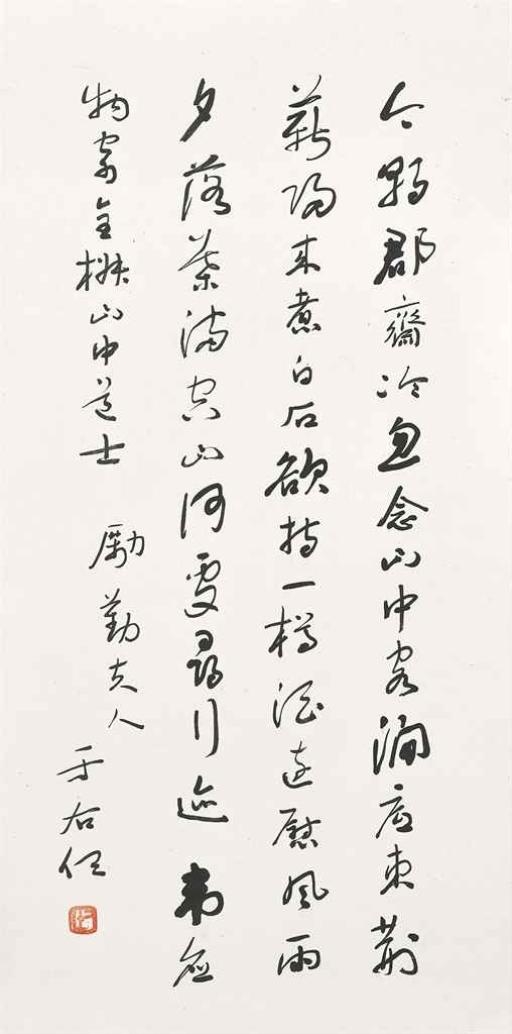 今朝郡齋冷忽念山中客澗底束荊
薪歸來煮白石欲持一樽酒遠慰風雨
夕落葉滿空山何處尋行迹 韋應
物寄全椒山中道士 勵勤夫人
于右任